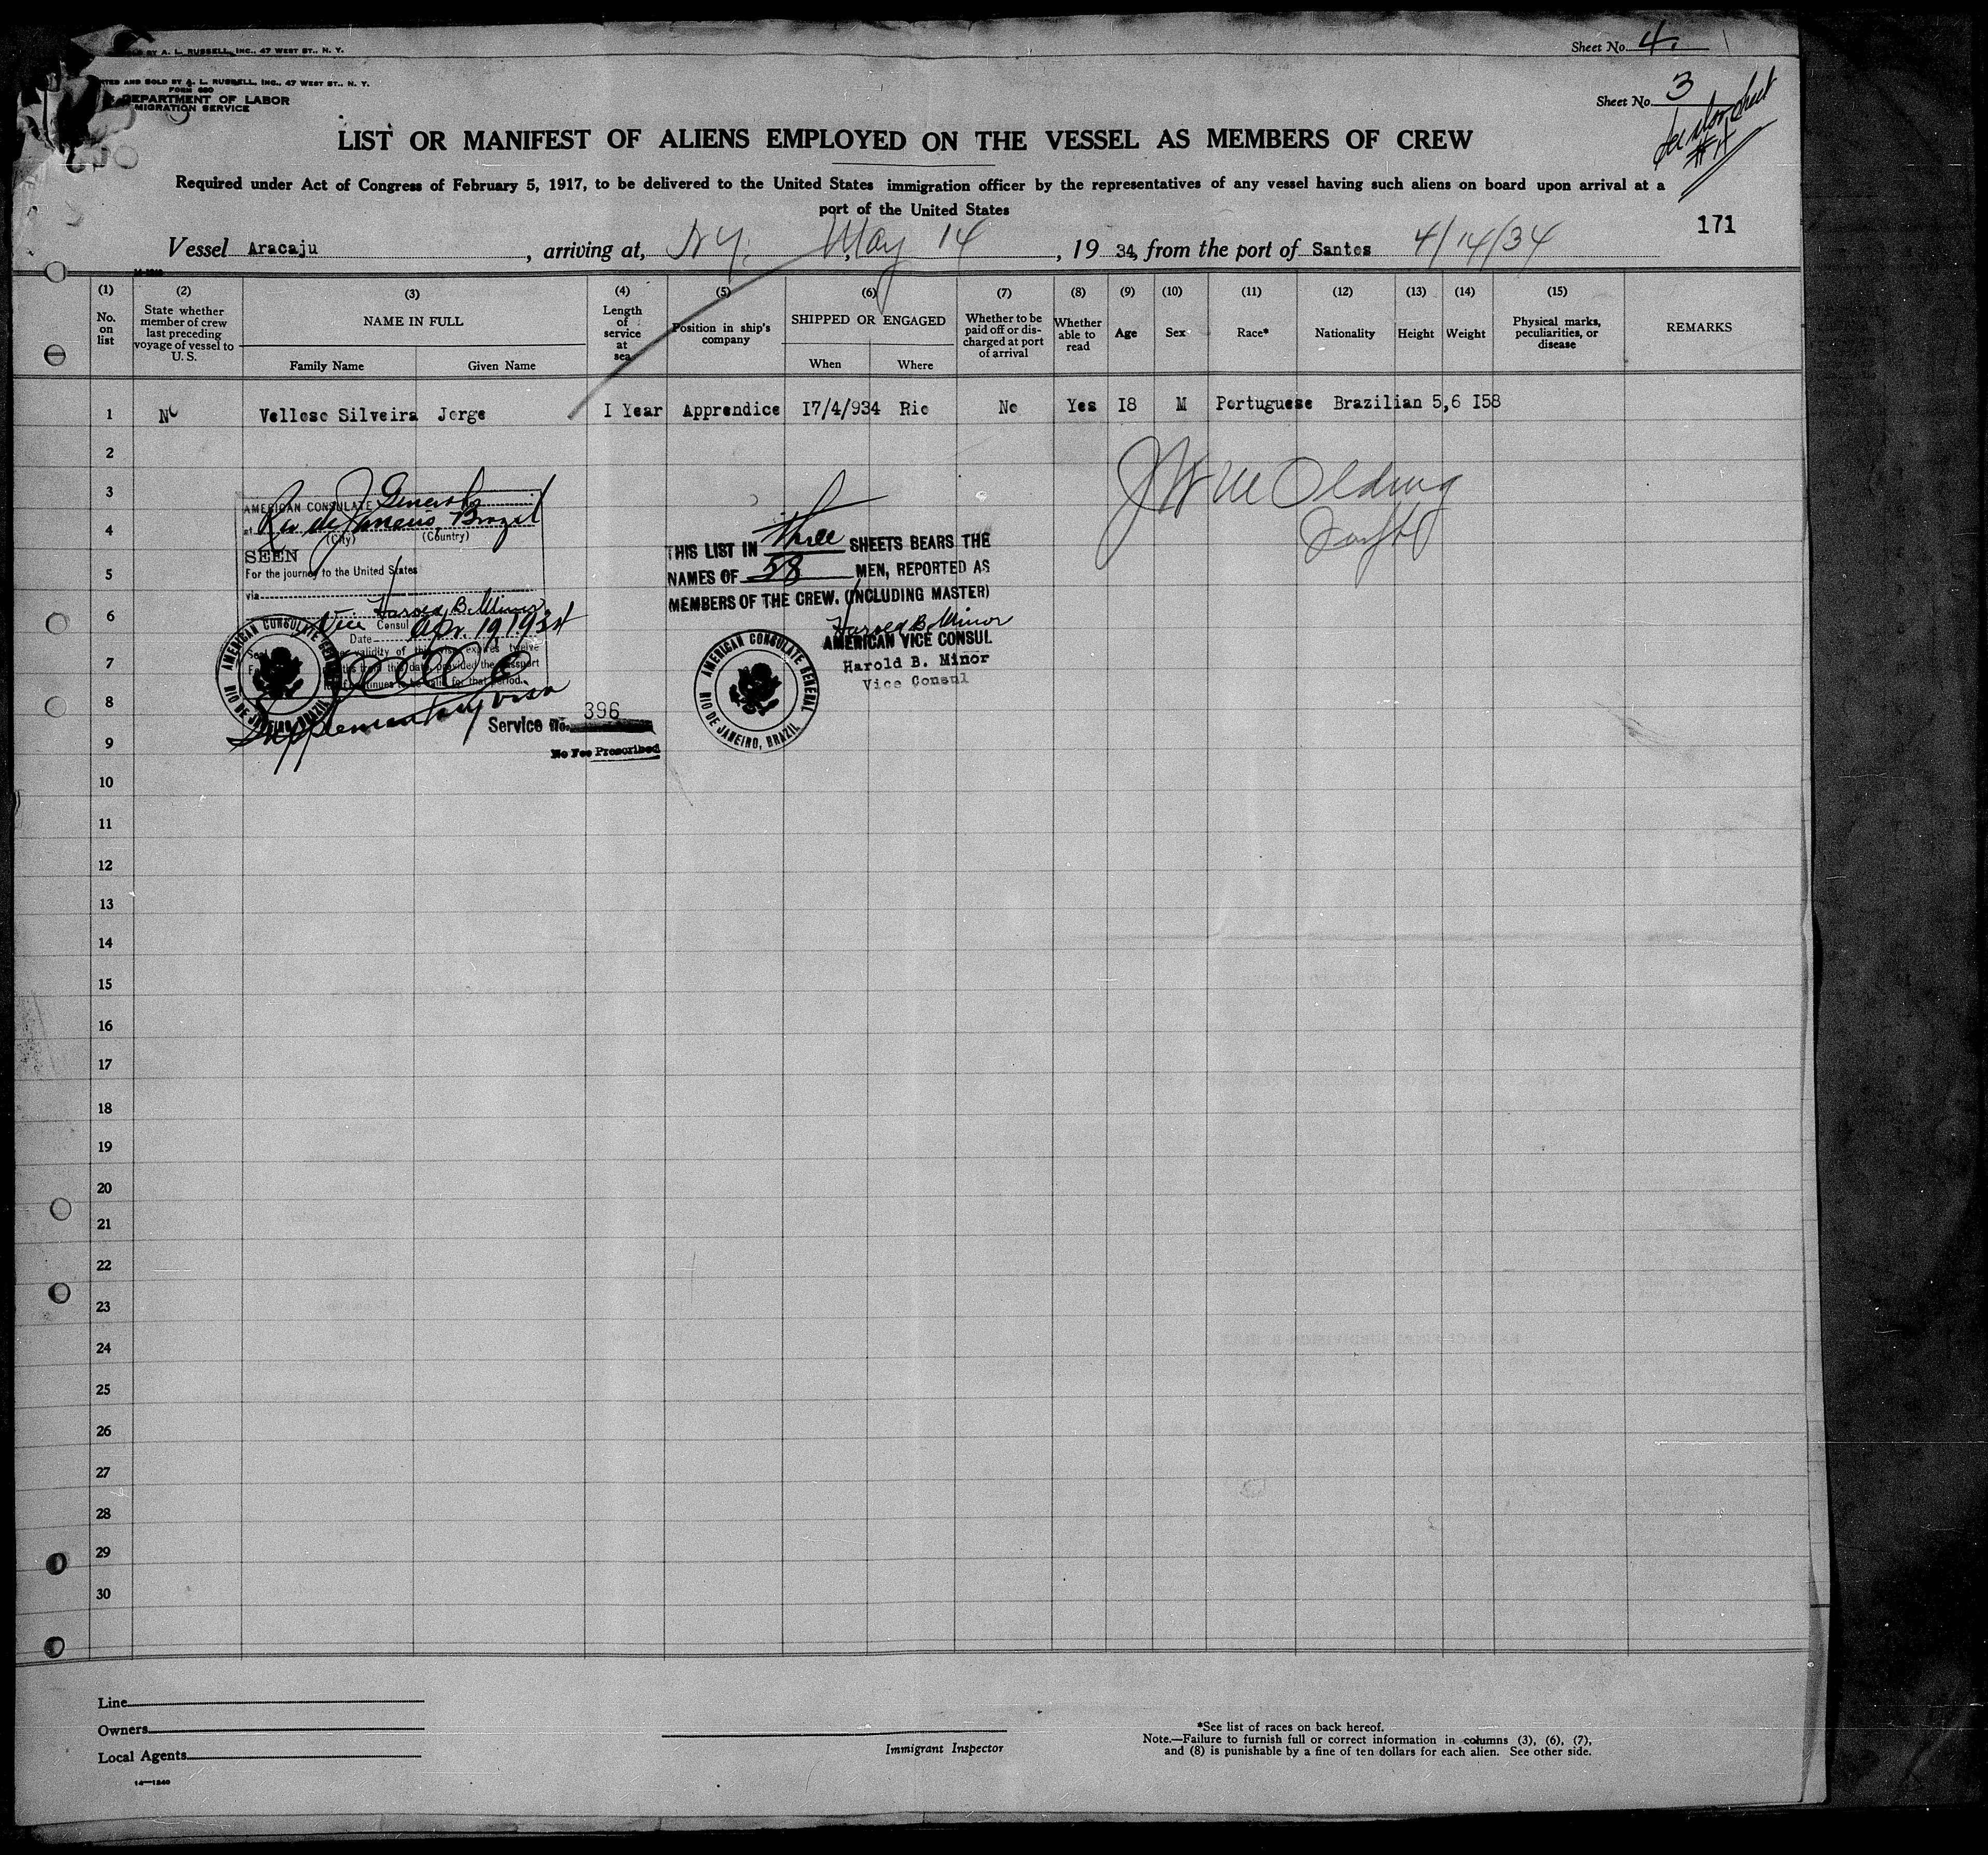 BY A. L. RUSSELL, INC., 47 WEST ST., N. Y.
Sheet No. 4.
AND SOLD BY A. L. RUSSELL, INC., 47 WEST ST., N. Y.
FORM 680
DEPARTMENT OF LABOR
MIGRATION SERVICE
Sheet No. 3
LIST OR MANIFEST OF ALIENS EMPLOYED ON THE VESSEL AS MEMBERS OF CREW
Required under Act of Congress of February 5, 1917, to be delivered to the United States immigration officer by the representatives of any vessel having such aliens on board upon arrival at a
port of the United States
171
Vessel Aracaju, arriving at, N.Y. May 14, 1934, from the port of Santos 4/14/34
(1) No. on list
(2) State whether member of crew last preceding voyage of vessel to U. S.
(3) NAME IN FULL
Family Name Given Name
(4) Length of service at sea
(5) Position in ship's company
(6) SHIPPED OR ENGAGED
When Where
(7) Whether to be paid off or discharged at port of arrival
(8) Whether able to read
(9) Age
(10) Sex
(11) Race*
(12) Nationality
(13) Height
(14) Weight
(15) Physical marks, peculiarities, or disease
REMARKS
1 No Velloso Silveira Jorge I Year Apprendice I7/4/934 Rio No Yes I8 M Portuguese Brazilian 5,6 I58
2
3
4
5
6
7
8
9
10
11
12
13
14
15
16
17
18
19
20
21
22
23
24
25
26
27
28
29
30
AMERICAN CONSULATE General
at Rio de Janeiro, Brazil
(City) (Country)
SEEN
For the journey to the United States
via
Harold B. Minor
Vice Consul
Date Apr. 19, 1934
validity of this visa expires twelve
months from this date, provided the passport
continues to be valid for that period.
AMERICAN CONSULATE GENERAL
RIO DE JANEIRO, BRAZIL
Supplementary visa
Service No. 396
No Fee Prescribed
THIS LIST IN three SHEETS BEARS THE
NAMES OF 58 MEN, REPORTED AS
MEMBERS OF THE CREW. (INCLUDING MASTER)
Harold B. Minor
AMERICAN VICE CONSUL
Harold B. Minor
Vice Consul
AMERICAN CONSULATE GENERAL
RIO DE JANEIRO, BRAZIL
Line
Owners
Local Agents
14—1240
Immigrant Inspector
*See list of races on back hereof.
Note.—Failure to furnish full or correct information in columns (3), (6), (7),
and (8) is punishable by a fine of ten dollars for each alien. See other side.